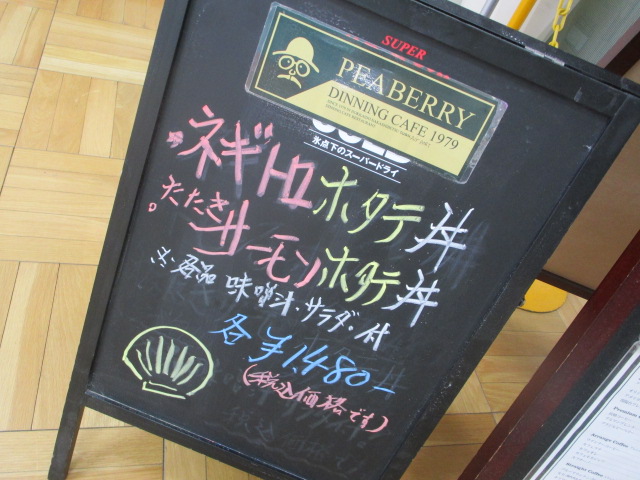 SUPER
PEABERRY
DINNING CAFE 1979
氷点下のスーパードライ
ネギトロホタテ丼
たたきサーモンホタテ丼
味噌汁・サラダ・付
各¥1,480-
(税込価格です)
Arrange Coffee
Straight Coffee